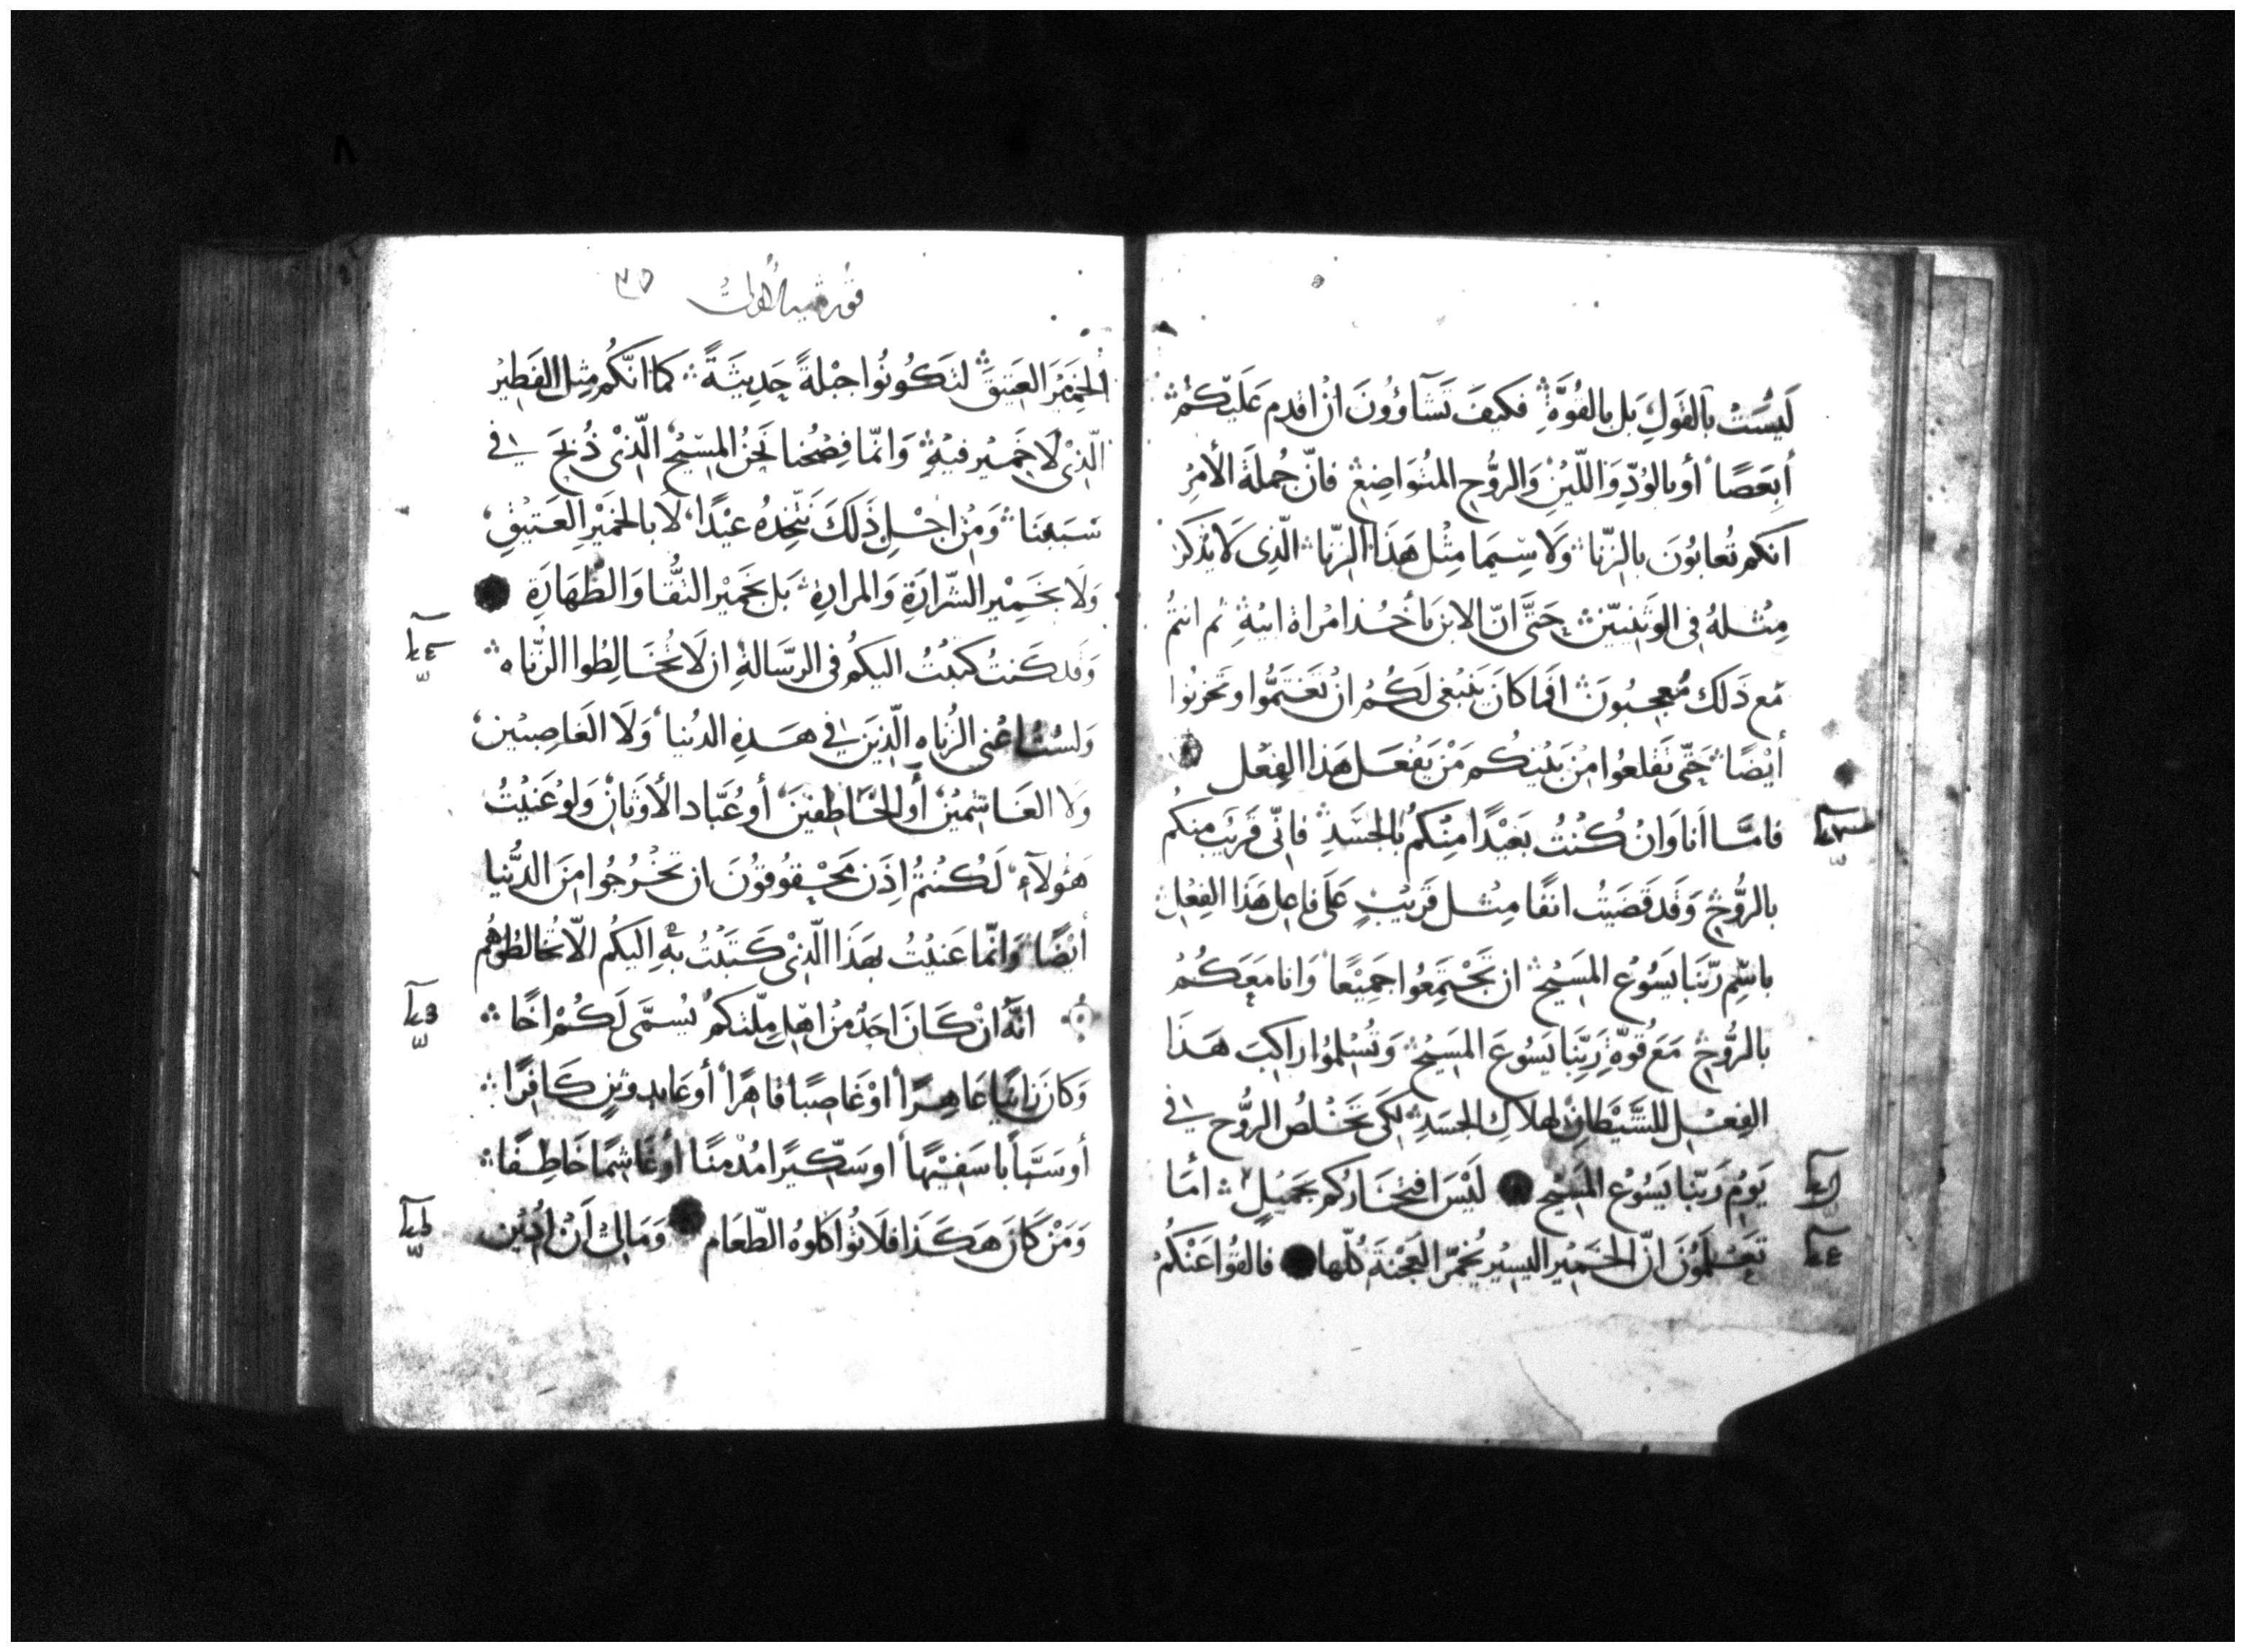 لَيْسَتْ بالقَولِ بَل بالقُوَّةِ فكَيفَ تَشَآؤُونَ ان اقدِم عَلَيْكُمْ
أبِعَصًا أو بالوُدِّ وَاللّيْنِ وَالرُّوْحِ المتُوَاضِعِ فانّ جُملَةَ الأمْرِ
انكم تُعابُونَ بالزّنا وَلَا سِيّمَا مِثْل هَذَا الزّنا الّذِى لَا يُذكَر
مِثْلهُ فى الوَثَنِيّيْنَ حَتَّى انّ الابن يَأخُذ امرَاة ابيْهِ ثم انتمُ
مَع ذَلك مُعجِبُونَ افَما كانَ يَنبْغى لَكُمْ انْ تَغتَمُّوا وتَحزنُوا
أيْضًا حَتّى تَقلعُوا مِنْ بَيْنِكُم مَنْ يَفْعَل هَذا الفِعْل
فامَّا اَنا وَانْ كُنْتُ بَعيْدًا مِنْكُم بالجسَدِ فانّى قَريْب منكُم
بالرُّوْحِ وَقَد قَضَيْتُ انفًا مِثْل قَريْبٍ عَلَى فاعِل هَذَا الفِعْل
باسْمِ رَبّنَا يَسُوْع المَسَيْحِ ان تَجْتَمِعُوا جَمِيْعًا وَانا مَعَكُمْ
بالرُّوْحِ مَعَ قُوّةِ رَبِّنَا يَسُوعَ المَسيْحِ وَتُسْلمُوا راكِبَ هَذَا
الفِعْل للشَّيْطَانِ لهَلاكِ الجَسَدِ لكَى تَخْلصُ الرُّوْح فى
يَوْمِ رَبّنا يَسُوْعَ المَسَيْح لَيْسَ افتخَاركُم بجَميْلٍ أمَا
تَعْلَمُوْنَ انّ الخَمِيْر اليسيْر يُخمّر العَجْنَةَ كُلّها فالقُوا عَنْكُمْ
قورنثيه الاولى
الخمَيْرَ العَتيقَ لتَكُونُوا جبْلةً حَدِيثَةً كما انّكُم مِثل الفَطيْر
الّذِى لَا خَمِيْر فيْهِ وَانّما فِصْحُنا نَحْنُ المسيْح الّذِىْ ذُبحَ فى
سَبَبِنَا وَمِنْ اجْلِ ذَلكَ نَتّخِذهُ عيْدًا لَا بالخَمْيرِ العَتيْقِ
وَلَا بخَمِيْر الشّرارَةِ وَالمرارة بَل بخَميْر النّقا وَالطّهَارَةِ
وَقَد كنتُ كتَبْتُ اليكُم فى الرسَّالةِ ان لَا تُخَالِطُوا الزُّناه
وَلسْتُ اعْنى الزُناه الّذيْنَ فى هَذِهِ الدنْيا وَلَا الغَاصِبيْن
وَلا الغَاشِميْن أو الخَاطِفيْنَ أو عُبَّاد الأوْثَانِ وَلو عَنَيْتُ
هَؤلَآءِ لَكُنْتُمْ اِذَن مَحْقُوقوْنَ ان تَخْرُجُوا مِنَ الدُّنيا
أيْضًا وَانّما عَنيْتُ بهَذَا الّذِىْ كَتَبْتُ بِهِ اِليكُم الّا تُخالطُوهُم
انَّهُ انْ كَانَ احَدٌ مِنْ اهْلِ مِلّتكُم يُسمَّى لَكُمْ اخًا
وَكانَ زانيًا عَاهِرًا اوْ غَاصِبًا قاهرًا أو عَابد وثنٍ كَافرًا
أو سَبَّاباً سَفيْهًا او سِكّيرًا مُدْمنًا أو غَاشِمًا خَاطِفًا
وَمَنْ كَانَ هَكَذَا فَلَا تُواكلوهُ الطّعَام وَمَا لِىْ أنْ ادِيْن